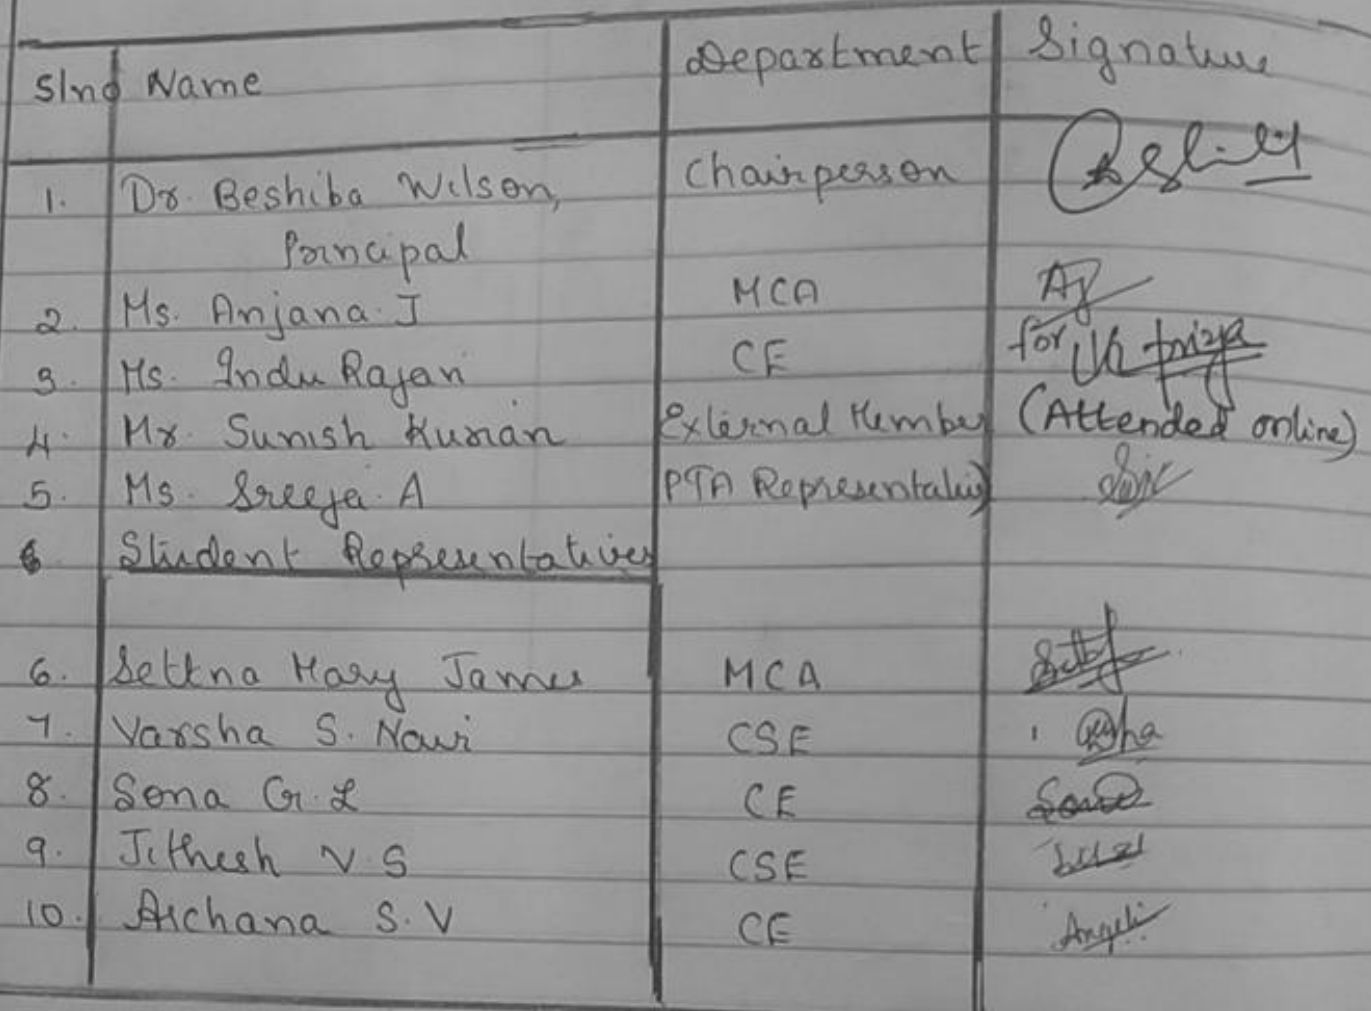 Slno Name Department Signature
1. Dr. Beshiba Wilson, Chairperson
Principal
2. Ms. Anjana. J MCA
3. Ms. Indu Rajan CE for
4. Mr. Sunish Kurian External Member (Attended online)
5. Ms. Sreeja. A PTA Representative
Student Representatives
6. Settna Mary James MCA
7. Varsha S. Nair CSE
8. Sona G. L CE
9. Jithesh V S CSE
10. Archana S. V CE